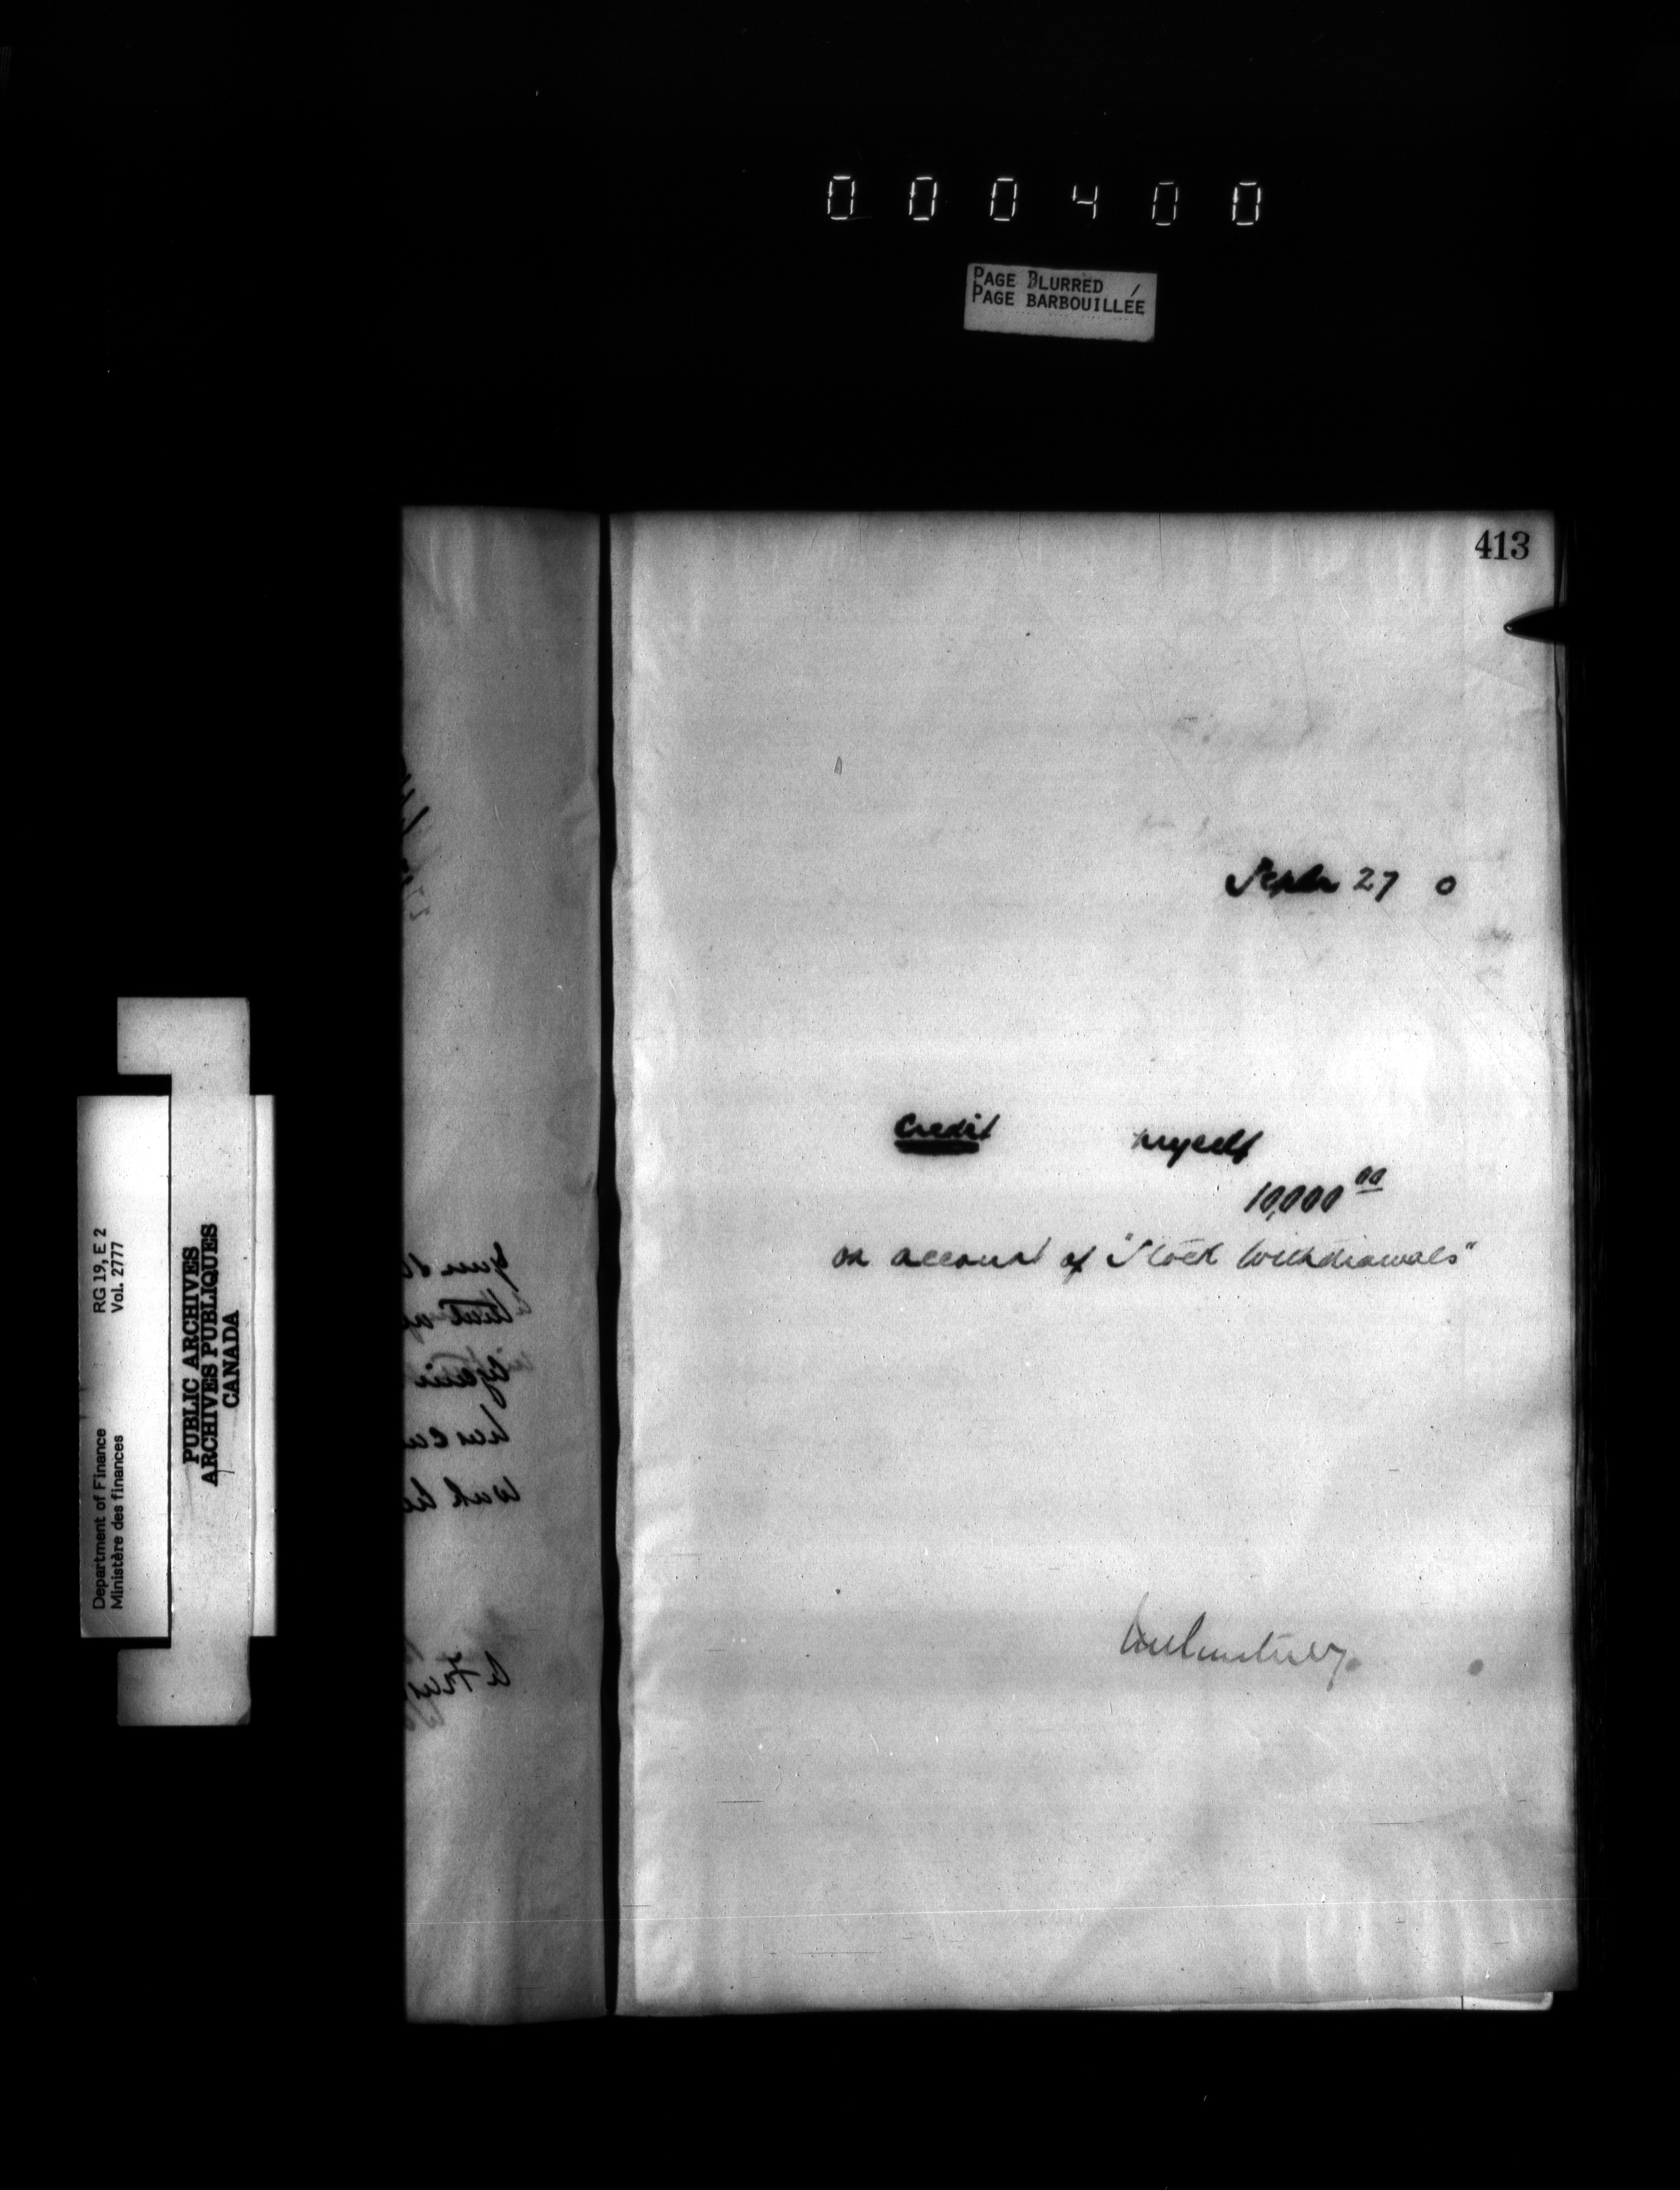 000400
PAGE BLURRED
PAGE BARBOUILLÉE
413
Septr 27 0
Credit myself
10,000 00
on account of "Stock Withdrawals"
Department of Finance RG 19, E 2
Ministère des finances Vol. 2777
PUBLIC ARCHIVES
ARCHIVES PUBLIQUES
CANADA